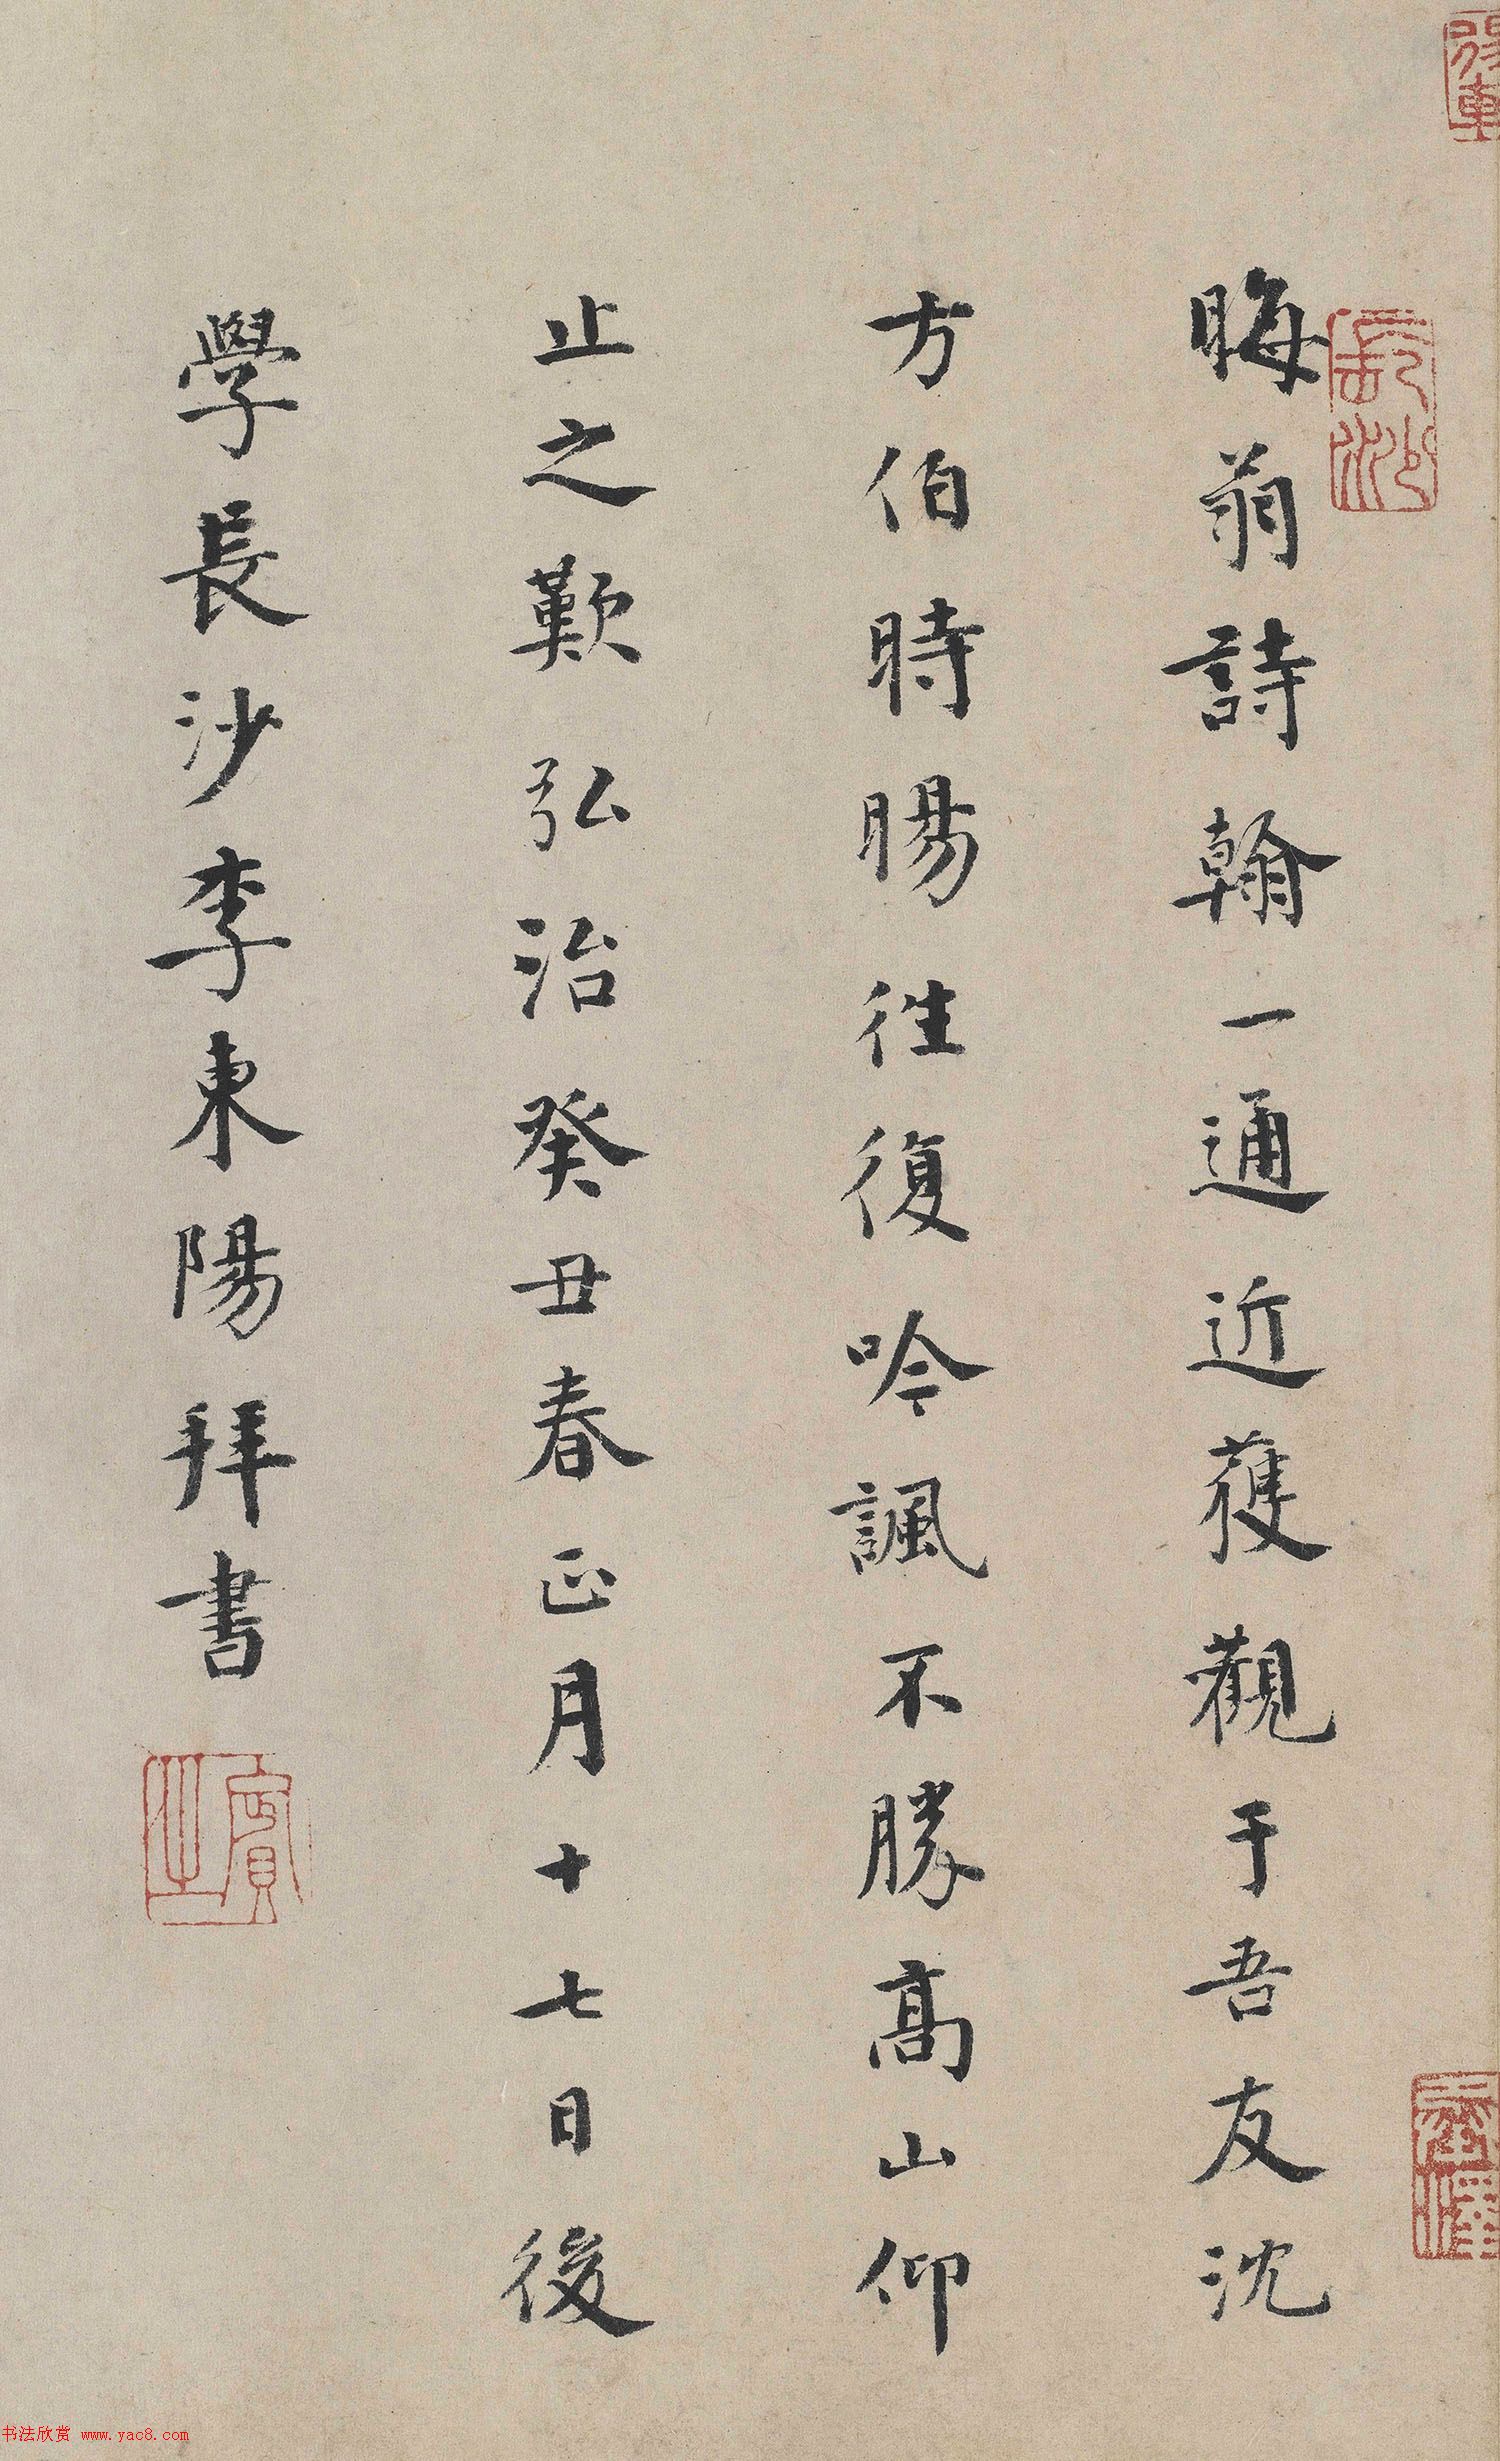 晦翁詩翰一通近獲觀于吾友沈
方伯時暘往復吟諷不勝高山仰
止之歎弘治癸丑春正月十七日後
學長沙李東陽拜書
長沙
賓之
书法欣赏 www.yac8.com